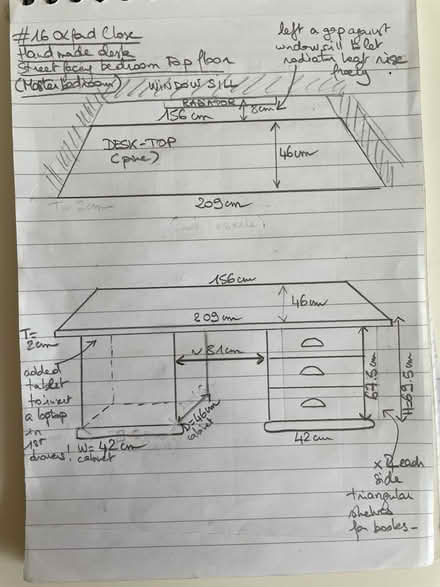 #16 Oxford Close
Hand made desk
Street facing bedroom Top floor
(Master bedroom)
left a gap against
windowsill to let
radiator heat rise
freely
WINDOW SILL
RADIATOR
156cm
8cm
DESK-TOP
(pine)
46cm
T= 2cm
209cm
156cm
46cm
209cm
T=
2cm
~ 81cm
added
tablet
to insert
a laptop
in
1st
drawer!
D=46cm
cabinet
W= 42cm
cabinet
42cm
67.5cm
H=69.5cm
x 2 each
side
triangular
shelves
for books-